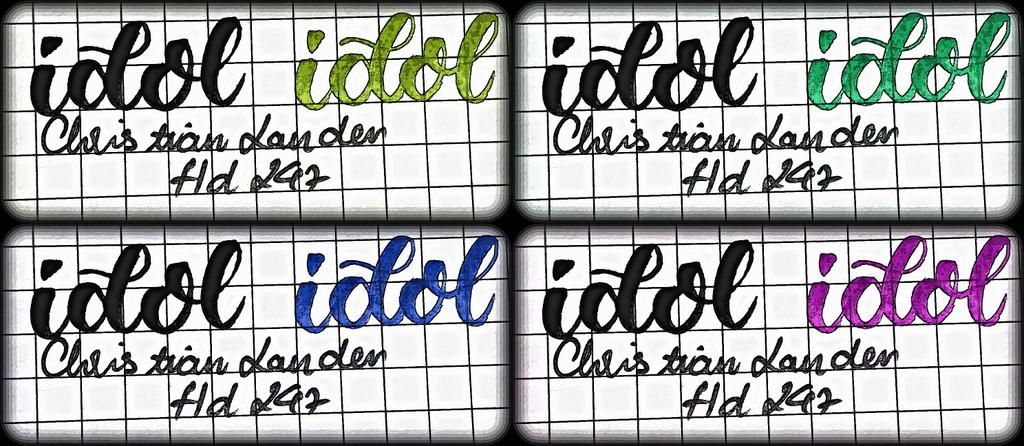 idol idol
Chris tian Landen
Hd 247
idol idol
Chris tian Landen
Hd 247
idol idol
Chris tian Landen
Hd 247
idol idol
Chris tian Landen
Hd 247